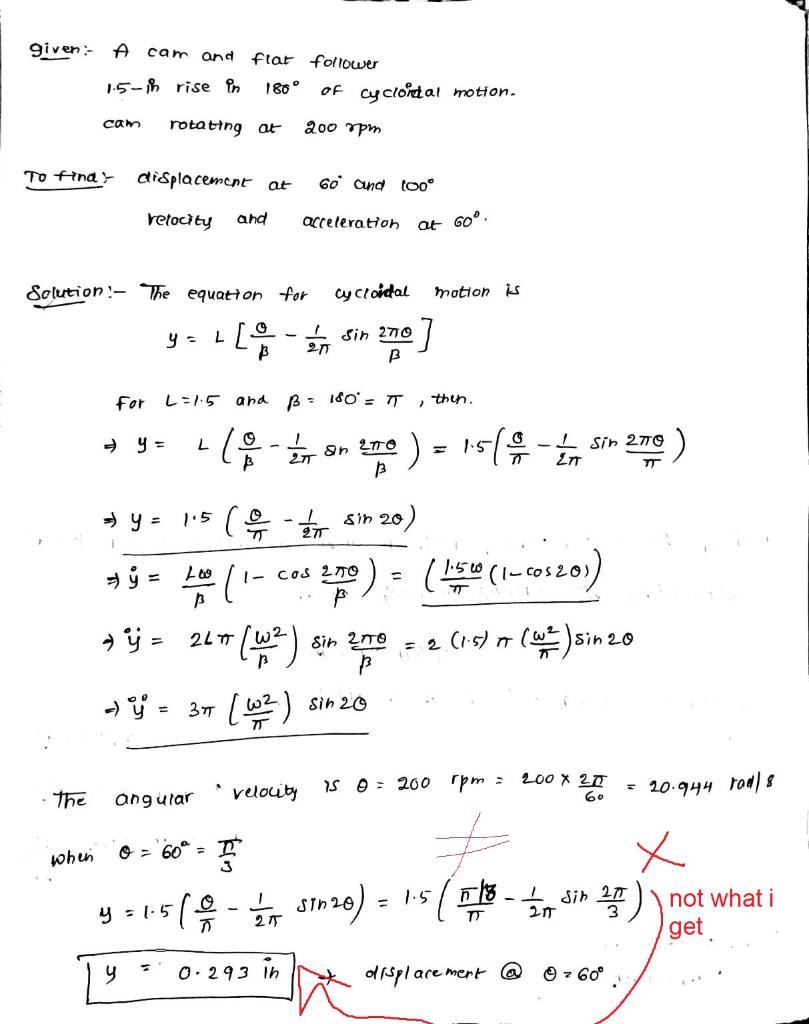 given:- A cam and flat follower
1.5-in rise in 180° of cycloidal motion.
cam rotating at 200 rpm
To find:- displacement at 60° and 100°
velocity and acceleration at 60°.
Solution:- The equation for cycloidal motion is
y = L [θ/β - 1/2π sin 2πθ/β]
For L=1.5 and β = 180° = π, then.
⇒ y = L (θ/β - 1/2π sin 2πθ/β) = 1.5(θ/π - 1/2π sin 2πθ/π)
⇒ y = 1.5 (θ/π - 1/2π sin 2θ)
⇒ ẏ = Lω/β (1 - cos 2πθ/β) = (1.5ω/π (1-cos2θ))
⇒ ÿ = 2Lπ (ω2/β) sin 2πθ/β = 2 (1.5) π (ω2/π) sin 2θ
⇒ ÿ = 3π (ω2/π) sin 2θ
The angular velocity is θ = 200 rpm = 200 x 2π/60 = 20.944 rad/s
when θ = 60° = π/3
y = 1.5 (θ/π - 1/2π sin2θ) = 1.5 (π/3/π - 1/2π sin 2π/3) not what i
get
y = 0.293 in → displacement @ θ = 60°.